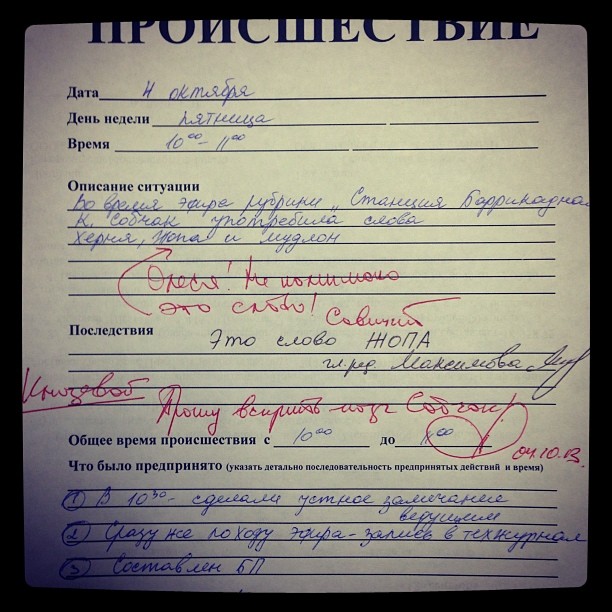 ПРОИСШЕСТВИЕ
Дата 4 октября
День недели пятница
Время 10⁰⁰ - 11⁰⁰
Описание ситуации
Во время эфира рубрики „Станция Баррикадная
К. Собчак употребила слова
херня, жопа и мудлон
Олеся! Не понимаю
это слово! Савицкий
Последствия Это слово ЖОПА
гл.ред. Максимова
Прошу вскрыть мозг Собчак!
Общее время происшествия с 10⁰⁰ до 11⁰⁰
04.10.13.
Что было предпринято (указать детально последовательность предпринятых действий и время)
① В 10³⁰ - сделали устное замечание
ведущим
② Сразу же по ходу эфира - запись в техжурнал
③ Составлен БП